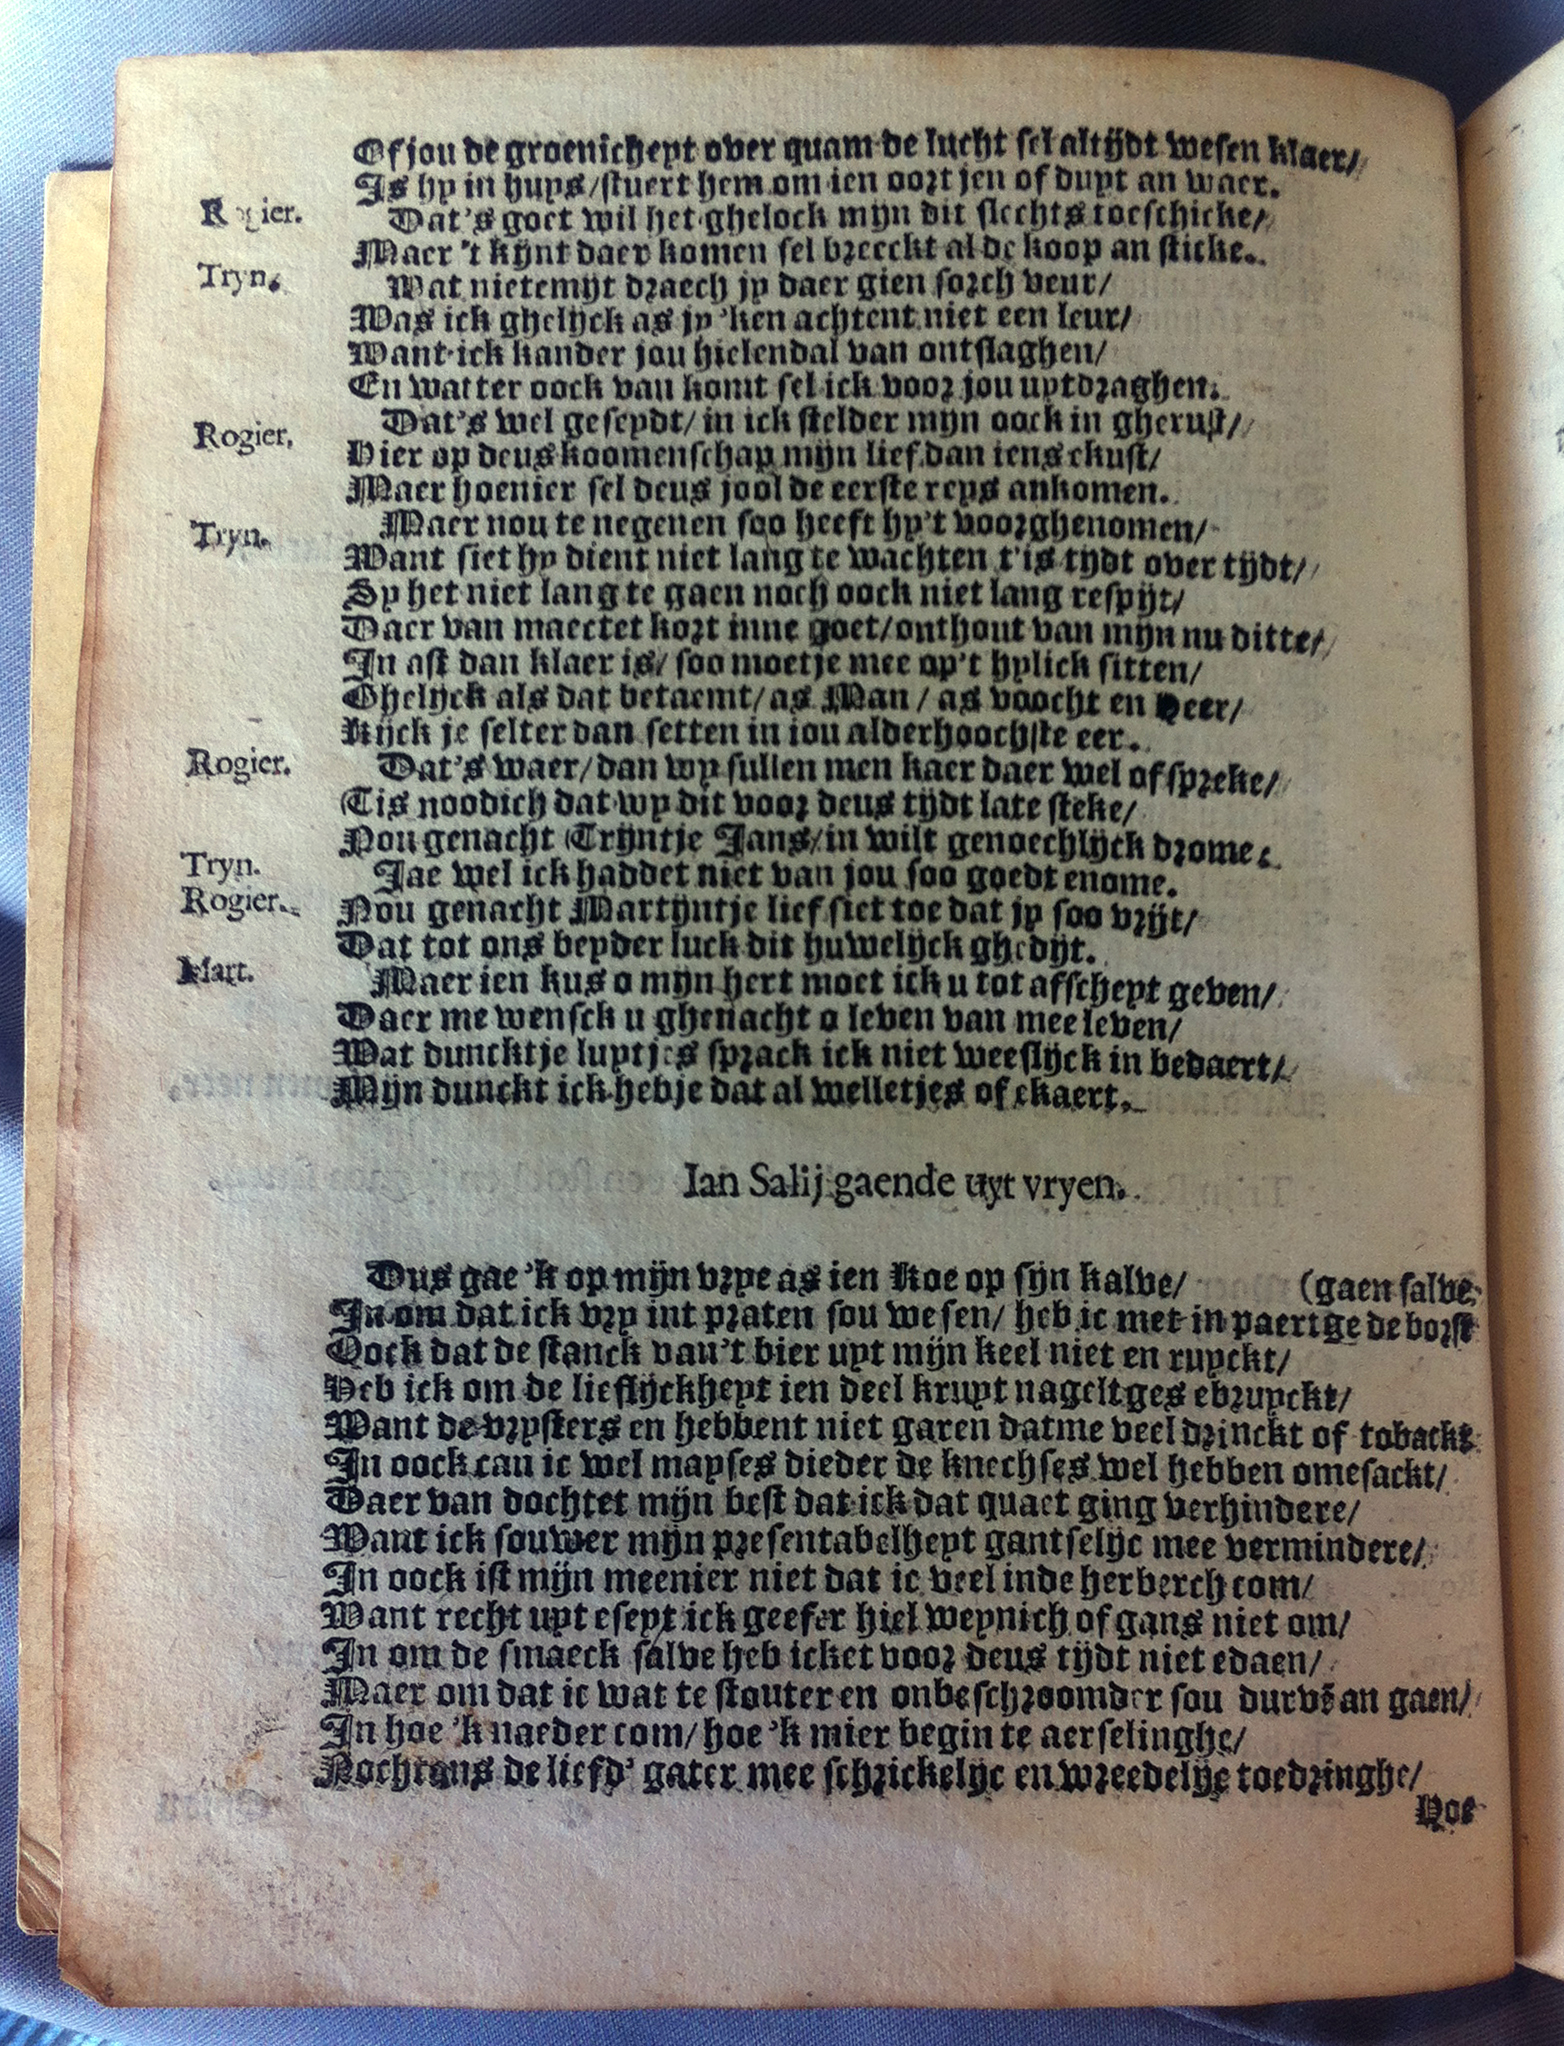 Of jou de groenicheyt over quam de lucht sel altijdt wesen klaer/
Is hy in huys/stuert hem om ien oort jen of duyt an waer.
Rogier. Dat's goet wil het gheloek mijn dit slechts toeschicke/
Maer 't kijnt daer komen sel breeckt al de koop an sticke.
Tryn. Wat nietemijt draech jy daer gien sorch veur/
Was ick ghelijck as jy 'ken achtent niet een leur/
Want ick kander jou hielendal van ontslaghen/
En watter oock van komt sel ick voor jou uytdraghen.
Rogier. Dat's wel geseydt/in ick stelder mijn oock in gherust/
Hier op deus koomenschap mijn lief dan iens ekust/
Maer hoenier sel deus jool de eerste reys ankomen.
Tryn. Maer nou te negenen soo heeft hy't voorghenomen/
Want siet hy dient niet lang te wachten t'is tijdt over tijdt/
Sy het niet lang te gaen noch oock niet lang respijt/
Daer van maectet kort inne goet/onthout van mijn nu ditte/
In ast dan klaer is/ soo moetje mee op't hylick sitten/
Ghelijck als dat betaemt/as Man/ as voocht en Heer/
Kijck je selter dan setten in iou alderhoochste eer.
Rogier. Dat's waer/dan wy sullen men kaer daer wel of spreke/
Tis noodich dat wy dit voor deus tijdt late steke/
Nou genacht Trijntje Jans/in wilt genoechlijck drome.
Tryn. Jae wel ick haddet niet van jou soo goedt enome.
Rogier. Nou genacht Martijntje lief siet toe dat jy soo vrijt/
Dat tot ons beyder luck dit huwelijck ghedijt.
Mart. Maer ien kus o mijn hert moet ick u tot afscheyt geven/
Daer me wensck u ghenacht o leven van mee leven/
Wat duncktje luytjes sprack ick niet weeslijck in bedaert/
Mijn dunckt ick hebje dat al welletjes of ekaert.
Ian Salij gaende uyt vryen.
Dus gae 'k op mijn vrye as ien Koe op sijn kalve/ (gaen salve
In om dat ick vry int praten sou wesen/ heb ic met in paertge de borst
Oock dat de stanck van't bier uyt mijn keel niet en ruyckt/
Heb ick om de lieflijckheyt ien deel kruyt nageltges ebruyckt/
Want de vrysters en hebbent niet garen datme veel drinckt of tobackt
In oock can ic wel mayses dieder de knechses wel hebben omesackt/
Daer van dochtet mijn best dat ick dat quaet ging verhindere/
Want ick souwer mijn presentabelheyt gantselijc mee vermindere/
In oock ist mijn meenier niet dat ic veel inde herberch com/
Want recht uyt eseyt ick geefer hiel weynich of gans niet om/
In om de smaeck salve heb icket voor deus tijdt niet edaen/
Maer om dat ic wat te stouter en onbeschroomder sou durvē an gaen/
In hoe 'k naeder com/ hoe 'k mier begin te aerselinghe/
Nochtans de liefd' gater mee schrickelijc en wreedelijc toedringhe/
Hoe